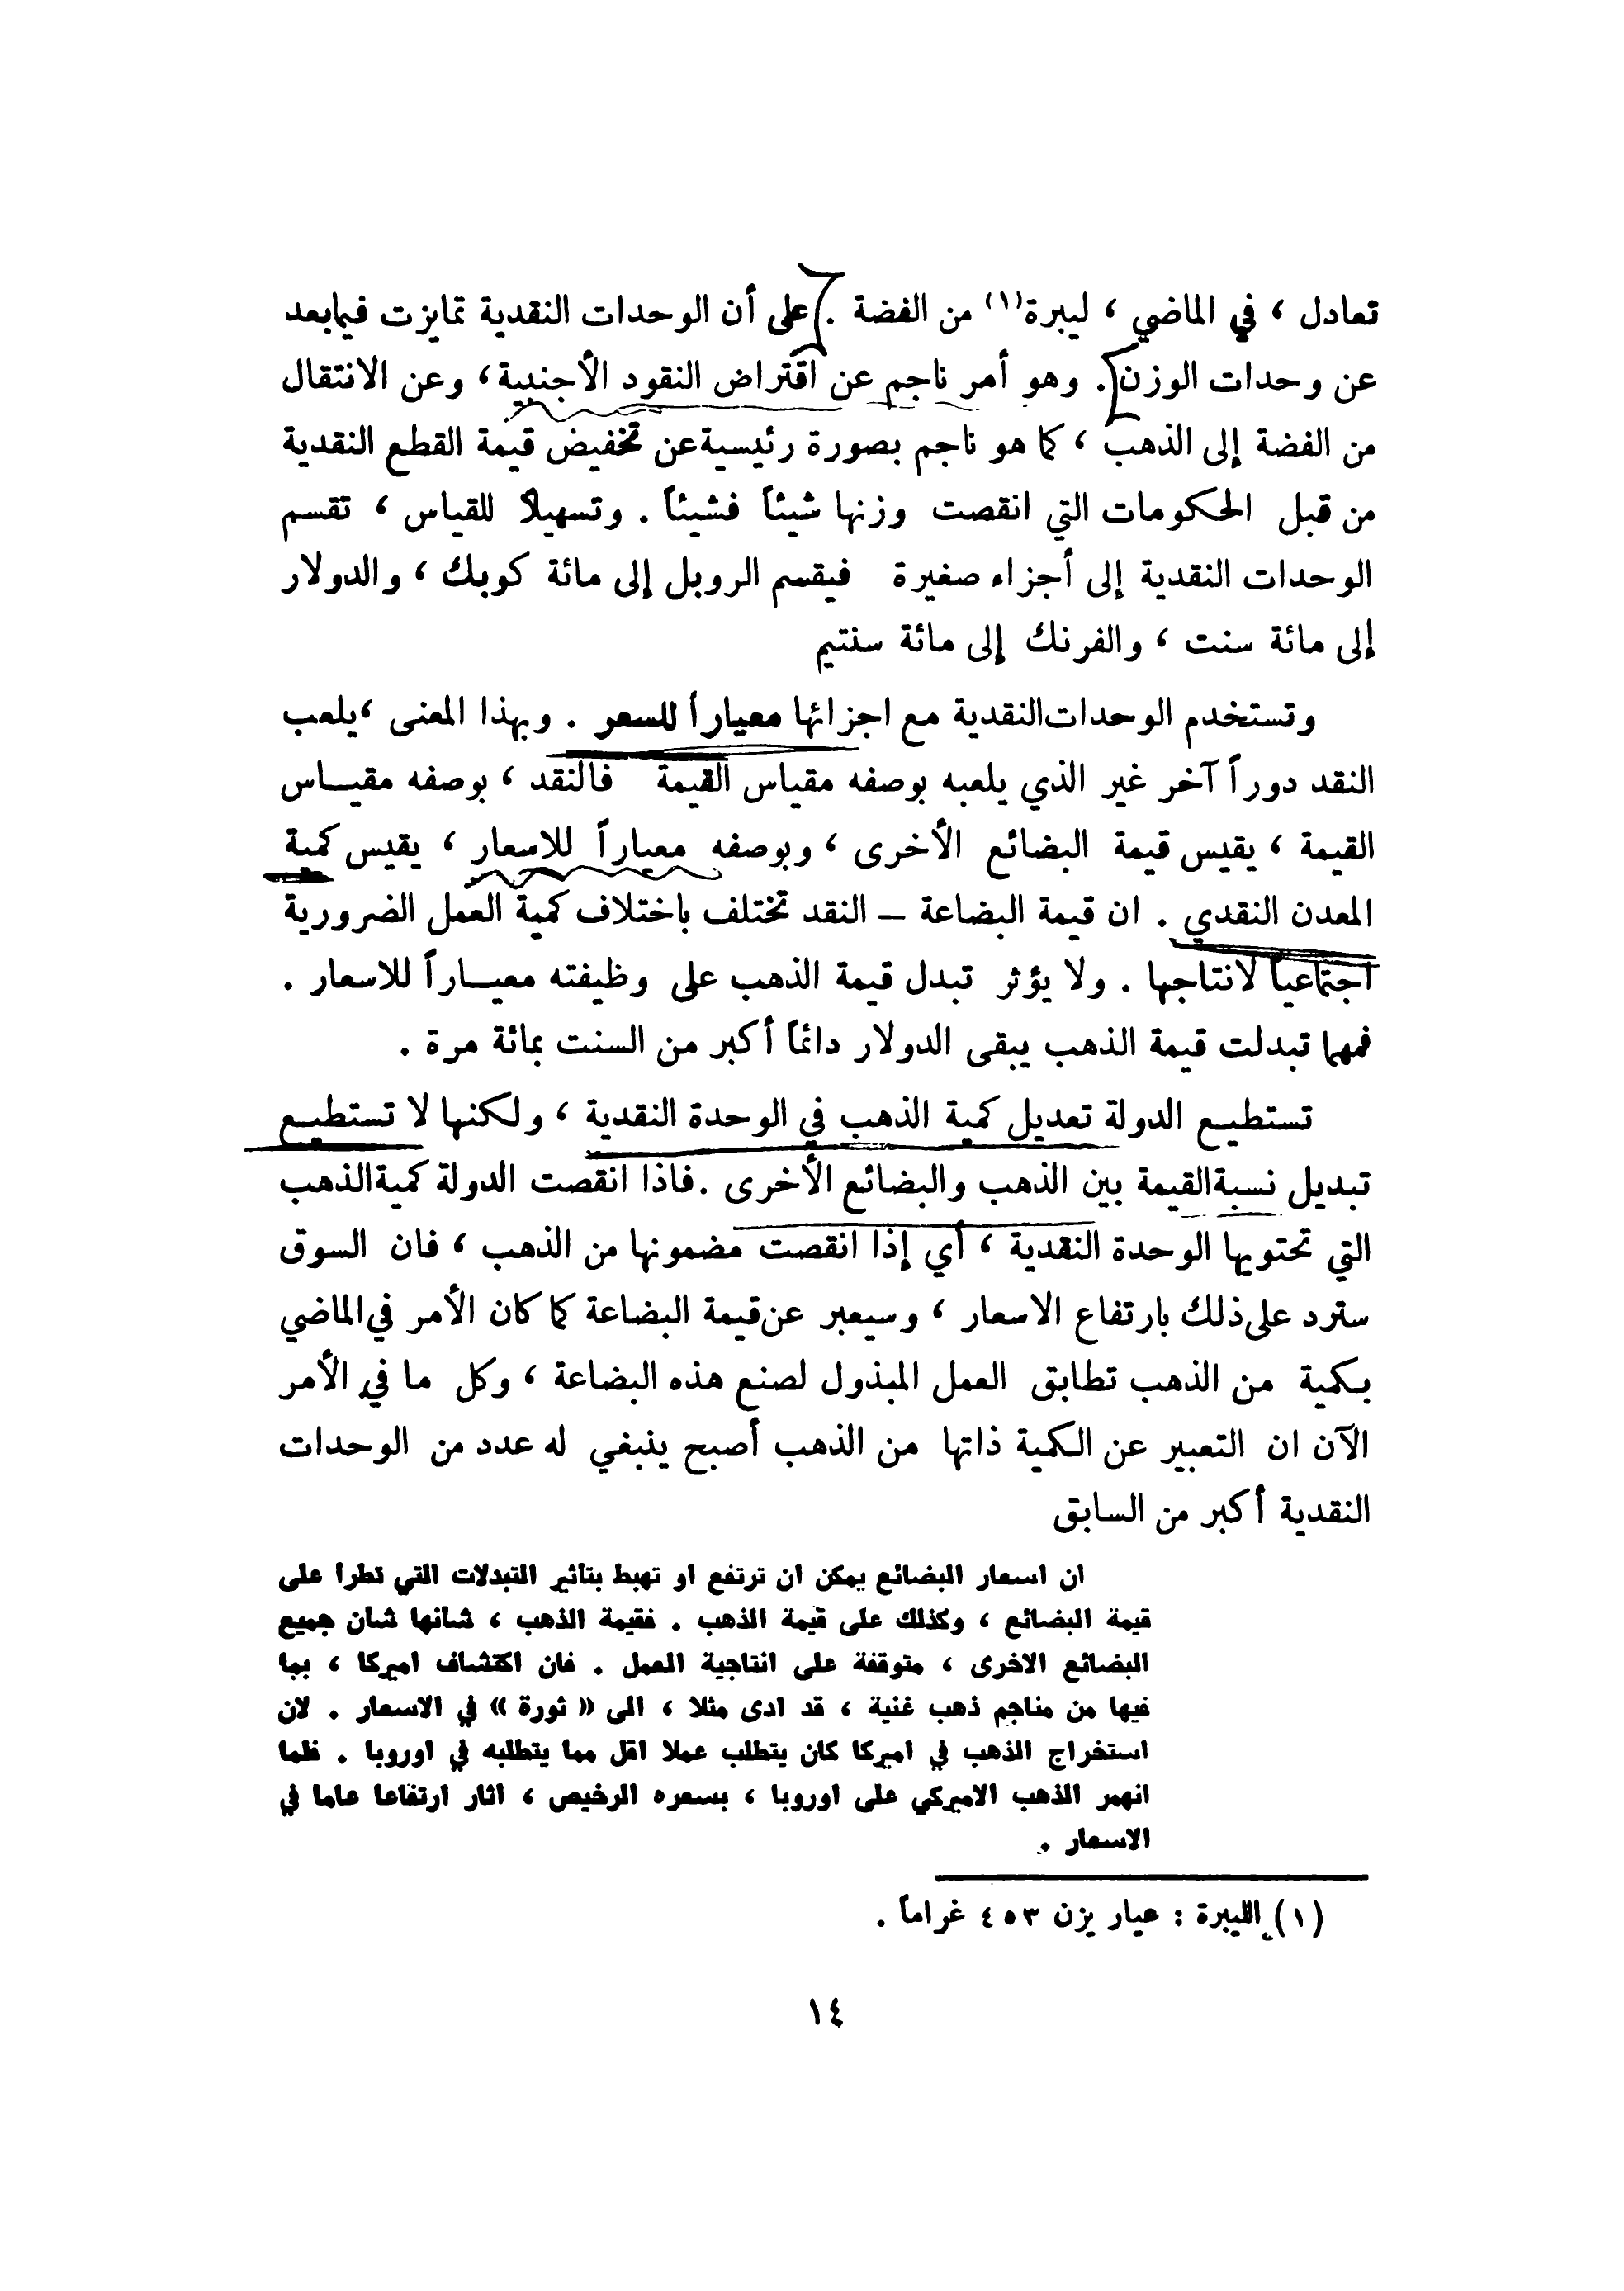 تعادل ، في الماضي ، ليبرة(١) من الفضة . على أن الوحدات النقدية تمايزت فيما بعد
عن وحدات الوزن . وهو أمر ناجم عن اقتراض النقود الأجنبية ، وعن الانتقال
من الفضة إلى الذهب ، كما هو ناجم بصورة رئيسية عن تخفيض قيمة القطع النقدية
من قبل الحكومات التي انقصت وزنها شيئاً فشيئاً . وتسهيلاً للقياس ، تقسم
الوحدات النقدية إلى أجزاء صغيرة فيقسم الروبل إلى مائة كوبك ، والدولار
إلى مائة سنت ، والفرنك إلى مائة سنتيم
وتستخدم الوحدات النقدية مع اجزائها معياراً للسعر . وبهذا المعنى ، يلعب
النقد دوراً آخر غير الذي يلعبه بوصفه مقياس القيمة فالنقد ، بوصفه مقيـاس
القيمة ، يقيس قيمة البضائع الأخرى ، وبوصفه معياراً للاسعار ، يقيس كمية
المعدن النقدي . ان قيمة البضاعة – النقد تختلف باختلاف كمية العمل الضرورية
اجتماعياً لانتاجها . ولا يؤثر تبدل قيمة الذهب على وظيفته معيـاراً للاسعار .
فمهما تبدلت قيمة الذهب يبقى الدولار دائماً أكبر من السنت بمائة مرة .
تستطيع الدولة تعديل كمية الذهب في الوحدة النقدية ، ولكنها لا تستطيع
تبديل نسبة القيمة بين الذهب والبضائع الأخرى . فاذا انقصت الدولة كمية الذهب
التي تحتويها الوحدة النقدية ، أي إذا انقصت مضمونها من الذهب ، فان السوق
سترد على ذلك بارتفاع الاسعار ، وسيعبر عن قيمة البضاعة كما كان الأمر في الماضي
بكمية من الذهب تطابق العمل المبذول لصنع هذه البضاعة ، وكل ما في الأمر
الآن ان التعبير عن الكمية ذاتها من الذهب أصبح ينبغي له عدد من الوحدات
النقدية أكبر من السابق
ان اسعار البضائع يمكن ان ترتفع او تهبط بتاثير التبدلات التي تطرا على
قيمة البضائع ، وكذلك على قيمة الذهب . فقيمة الذهب ، شانها شان جميع
البضائع الاخرى ، متوقفة على انتاجية العمل . فان اكتشاف اميركا ، بما
فيها من مناجم ذهب غنية ، قد ادى مثلا ، الى « ثورة » في الاسعار . لان
استخراج الذهب في اميركا كان يتطلب عملا اقل مما يتطلبه في اوروبا . فلما
انهمر الذهب الاميركي على اوروبا ، بسعره الرخيص ، اثار ارتفاعا عاما في
الاسعار .
(١) الليبرة : عيار يزن ٤٥٣ غراماً .
١٤